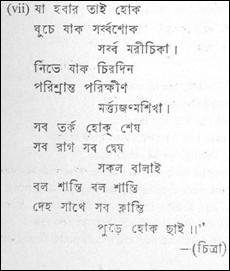 (vii) যা হবার তাই হোক
ঘুচে যাক সর্ব্বশোক
সর্ব্ব মরীচিকা।
নিভে যাক চিরদিন
পরিশ্রান্ত পরিক্ষীণ
মর্ত্ত্যজন্মশিখা।
সব তর্ক হোক্ শেষ
সব রাগ সব দ্বেষ
সকল বালাই
বল শান্তি বল শান্তি
দেহ সাথে সব ক্লান্তি
পুড়ে হোক ছাই।।"
—(চিত্রা)